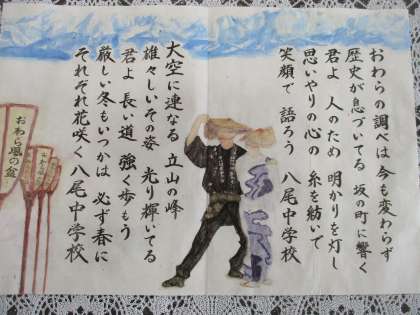 おわらの調べは 今も変わらず
歴史が息づいてる 坂の町に響く
君よ 人のため 明かりを灯し
思いやりの心の 糸を紡いで
笑顔で 語ろう 八尾中学校
大空に連なる 立山の峰
雄々しいその姿 光り輝いてる
君よ 長い道 強く歩もう
厳しい冬もいつかは 必ず春に
それぞれ花咲く 八尾中学校
おわら風の盆